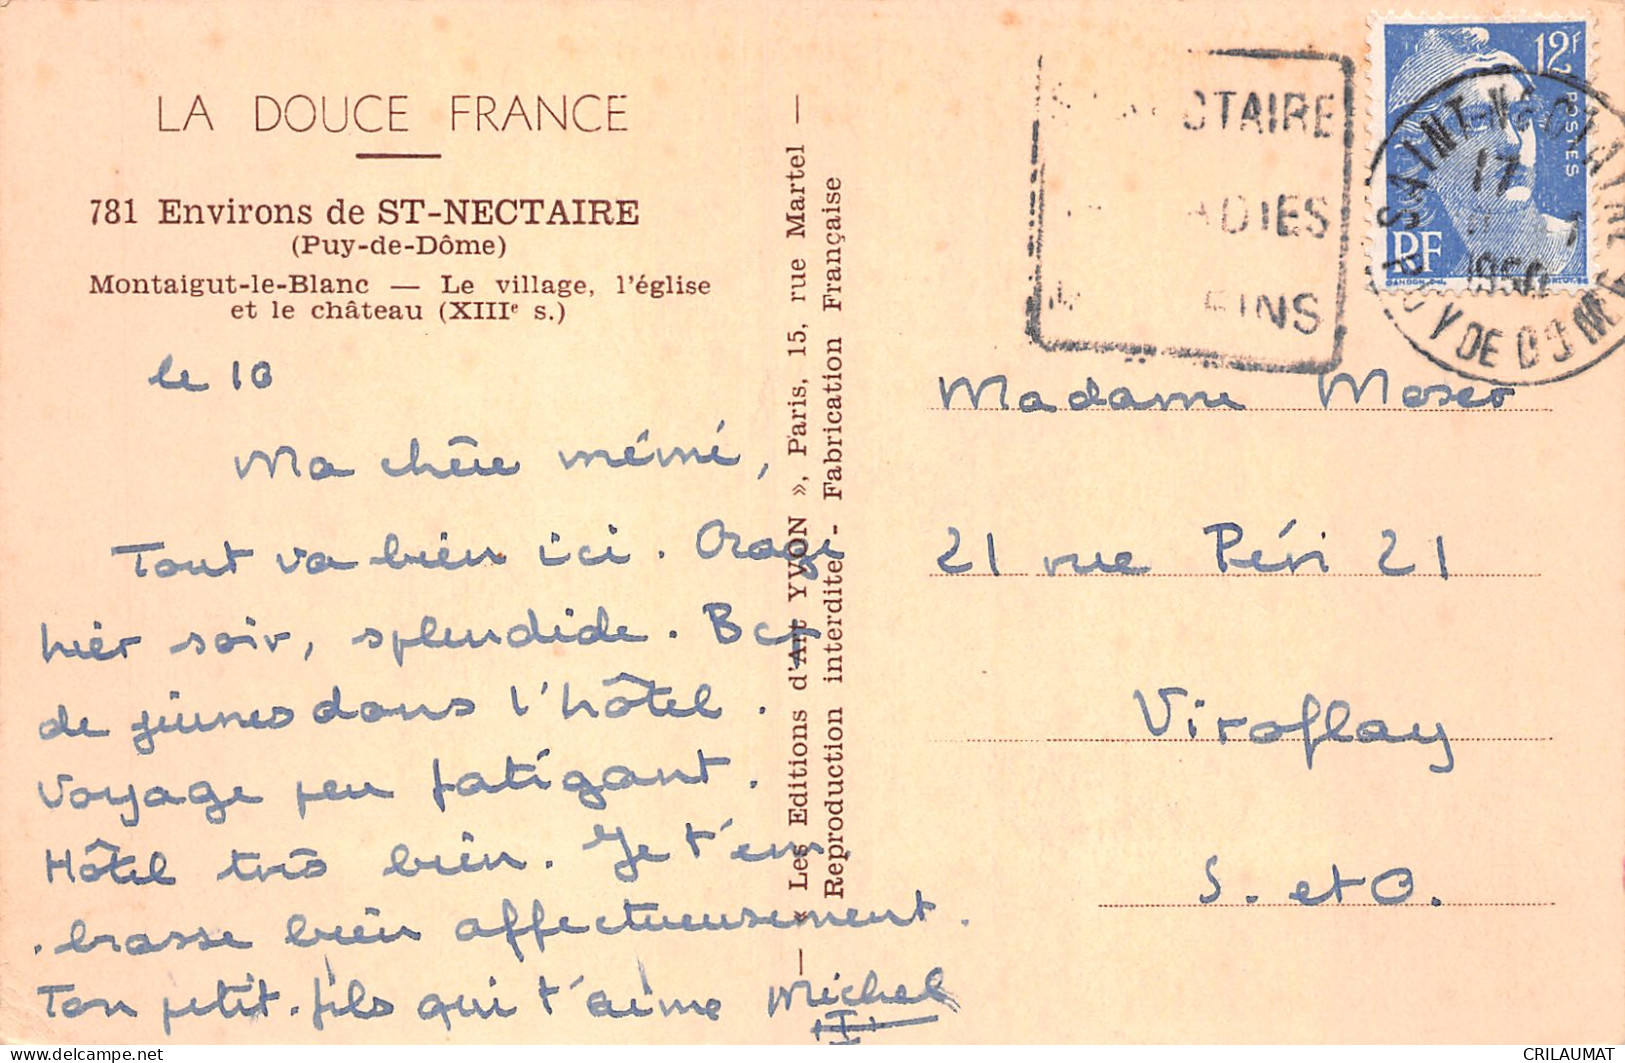 LA DOUCE FRANCE
781 Environs de ST-NECTAIRE
(Puy-de-Dôme)
Montaigut-le-Blanc — Le village, l'église
et le château (XIIIe s.)
le 10
Ma chère mémé,
Tout va bien ici. Orage
hier soir, splendide. Bcp
de jeunes dans l'hôtel.
Voyage peu fatigant.
Hôtel très bien. Je t'em
brasse bien affectueusement.
Ton petit-fils qui t'aime Michel
— « Les Editions d'Art YVON », Paris, 15, rue Martel —
Reproduction interdite - Fabrication Française
CTAIRE
ADIES
EINS
12F
POSTES
RF
GANDON
SAINT-NECTAIRE
17
1950
PUY DE DOME
Madame Moser
21 rue Péri 21
Viroflay
S. et O.
delcampe.net
CRILAUMAT